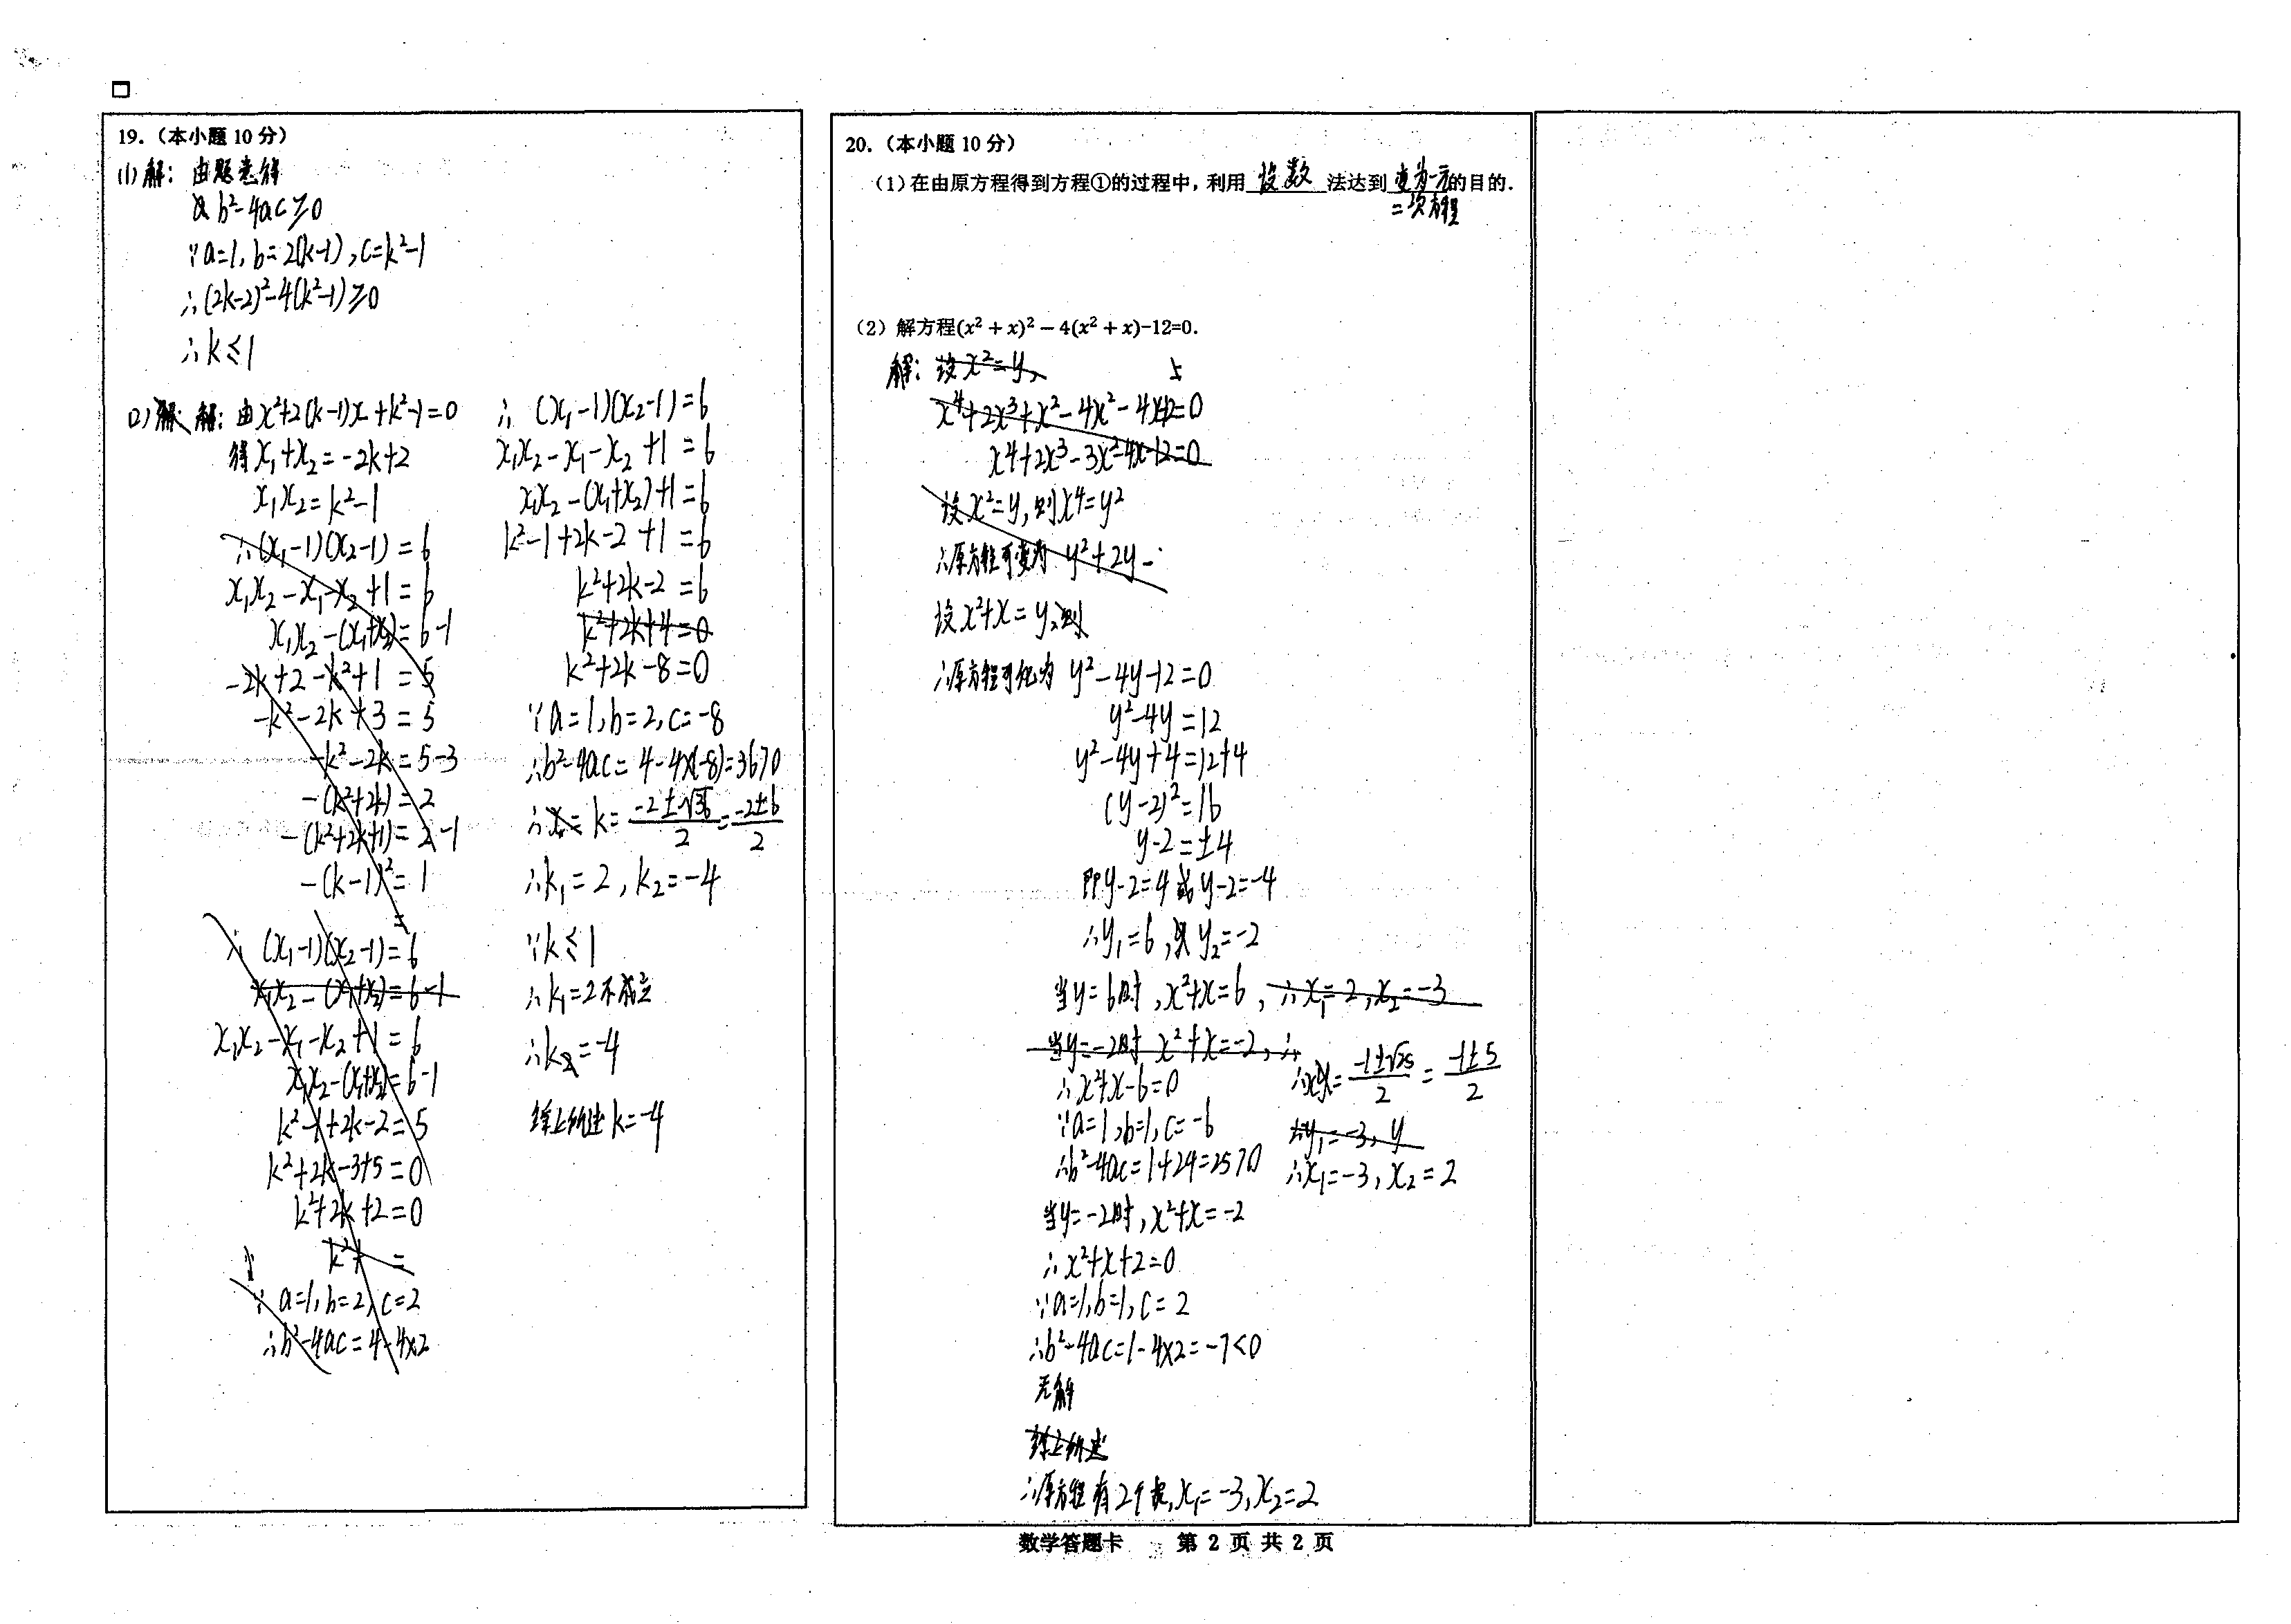 19.（本小题 10 分）
(1)解：由题意得
b²-4ac≥0
∵a=1, b=2(k-1), c=k²-1
∴(2k-2)²-4(k²-1)≥0
∴k≤1
(2) 解：由x²+2(k-1)x+k²-1=0
得x₁+x₂=-2k+2
x₁x₂=k²-1
∴(x₁-1)(x₂-1)=6
x₁x₂-x₁-x₂+1=6
x₁x₂-(x₁+x₂)=6-1
-2k+2-k²+1=5
-k²-2k+3=5
-k²-2k=5-3
-(k²+2k)=2
-(k²+2k+1)=2-1
-(k-1)²=1
=
∴(x₁-1)(x₂-1)=6
x₁x₂-(x₁+x₂)=6-1
x₁x₂-x₁-x₂+1=6
x₁x₂-(x₁+x₂)=6-1
k²-1+2k-2=5
k²+2k-3+5=0
k²+2k+2=0
k²+ =
∵a=1, b=2, c=2
∴b²-4ac=4-4×2
∴(x₁-1)(x₂-1)=6
x₁x₂-x₁-x₂+1=6
x₁x₂-(x₁+x₂)+1=6
k²-1+2k-2+1=6
k²+2k-2=6
k²+2k+4=0
k²+2k-8=0
∵a=1, b=2, c=-8
∴b²-4ac=4-4×(-8)=36>0
∴x= k=(-2±√36)/2=(-2±6)/2
∴k₁=2, k₂=-4
∵k≤1
∴k₁=2不成立
∴k₂=-4
综上所述k=-4
20.（本小题 10 分）
（1）在由原方程得到方程①的过程中，利用 设数 法达到 变为一元的目的.
二次方程
（2）解方程(x² + x)² − 4(x² + x)-12=0.
解：设x²=y,
x⁴+2x³+x²-4x²-4x-12=0
x⁴+2x³-3x²-4x-12=0
设x²=y,则x⁴=y²
∴原方程可变为 y²+2y-
设x²+x=y,则
∴原方程可化为 y²-4y-12=0
y²-4y=12
y²-4y+4=12+4
(y-2)²=16
y-2=±4
即y-2=4或y-2=-4
∴y₁=6, y₂=-2
当y=6时,x²+x=6, ∴x₁=2,x₂=-3
当y=-2时 x²+x=-2,∴
∴x²+x-6=0
∵a=1,b=1,c=-6
∴b²-4ac=1+24=25>0
∴x=(-1±√25)/2=(-1±5)/2
∴y₁=-3,y
∴x₁=-3, x₂=2
当y=-2时,x²+x=-2
∴x²+x+2=0
∵a=1,b=1,c=2
∴b²-4ac=1-4×2=-7<0
无解
综上所述
∴原方程有2个根,x₁=-3,x₂=2
数学答题卡 第 2 页 共 2 页